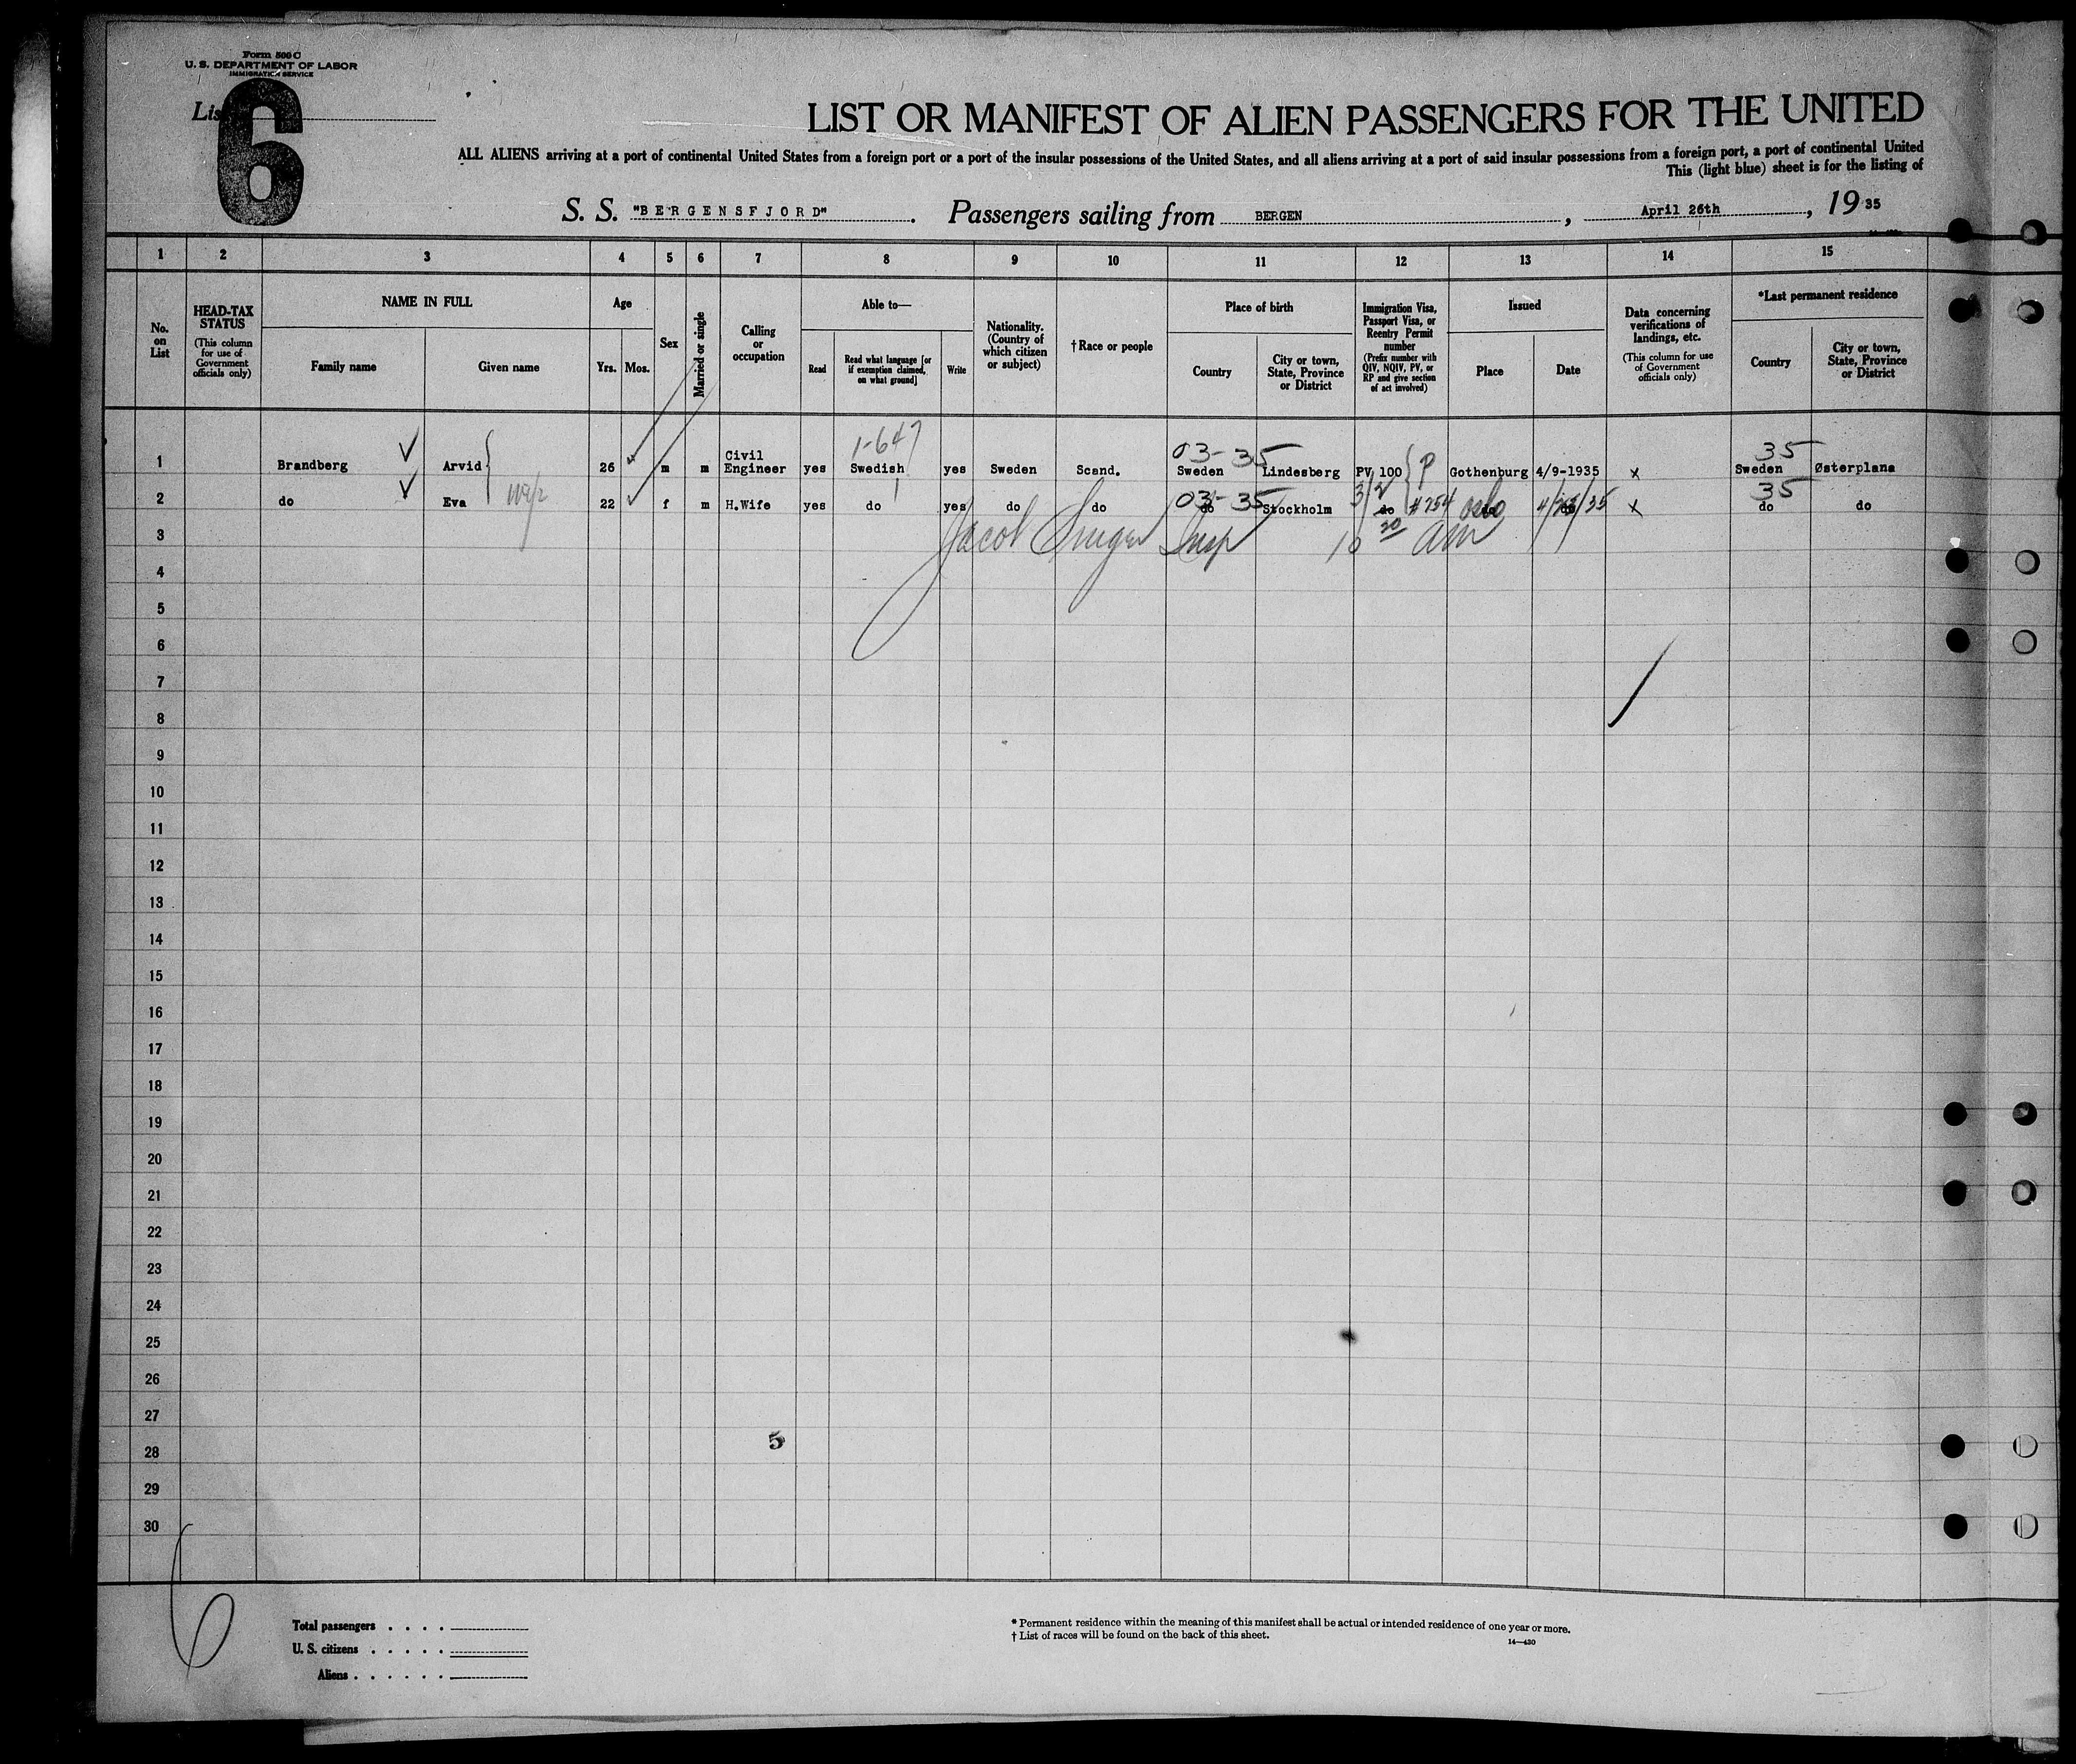 Form 500 C
U. S. DEPARTMENT OF LABOR
IMMIGRATION SERVICE
List
6
LIST OR MANIFEST OF ALIEN PASSENGERS FOR THE UNITED
ALL ALIENS arriving at a port of continental United States from a foreign port or a port of the insular possessions of the United States, and all aliens arriving at a port of said insular possessions from a foreign port, a port of continental United
This (light blue) sheet is for the listing of
S. S. "BERGENSFJORD". Passengers sailing from BERGEN, April 26th, 1935
1 2 3 4 5 6 7 8 9 10 11 12 13 14 15
No. on List
HEAD-TAX STATUS (This column for use of Government officials only)
NAME IN FULL
Family name
Given name
Age
Yrs. Mos.
Sex
Married or single
Calling or occupation
Able to—
Read
Read what language [or if exemption claimed, on what ground]
Write
Nationality. (Country of which citizen or subject)
† Race or people
Place of birth
Country
City or town, State, Province or District
Immigration Visa, Passport Visa, or Reentry Permit number (Prefix number with QIV, NQIV, PV, or RP and give section of act involved)
Issued
Place
Date
Data concerning verifications of landings, etc. (This column for use of Government officials only)
*Last permanent residence
Country
City or town, State, Province or District
1-647 03-35 35
1 Brandberg Arvid 26 m m Civil Engineer yes Swedish yes Sweden Scand. Sweden Lindesberg PV 100 P Gothenburg 4/9-1935 x Sweden Østerplana
03-35 35
2 do Eva 22 f m H.Wife yes do yes do do do Stockholm do #754 Oslo do 4/ /35 x do do
3 Jacob Singer Insp 10 20 AM
4
5
6
7
8
9
10
11
12
13
14
15
16
17
18
19
20
21
22
23
24
25
26
27
5
28
29
30
6
Total passengers . . . .
U. S. citizens . . . . .
Aliens . . . . . .
* Permanent residence within the meaning of this manifest shall be actual or intended residence of one year or more.
† List of races will be found on the back of this sheet.
14—430